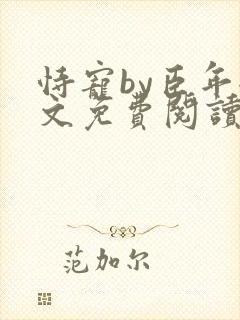 恃寵by臣年
文免費閱讀
范加尔